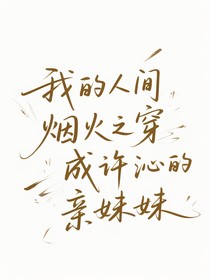 我的人间
烟火之穿
成许沁的
亲妹妹